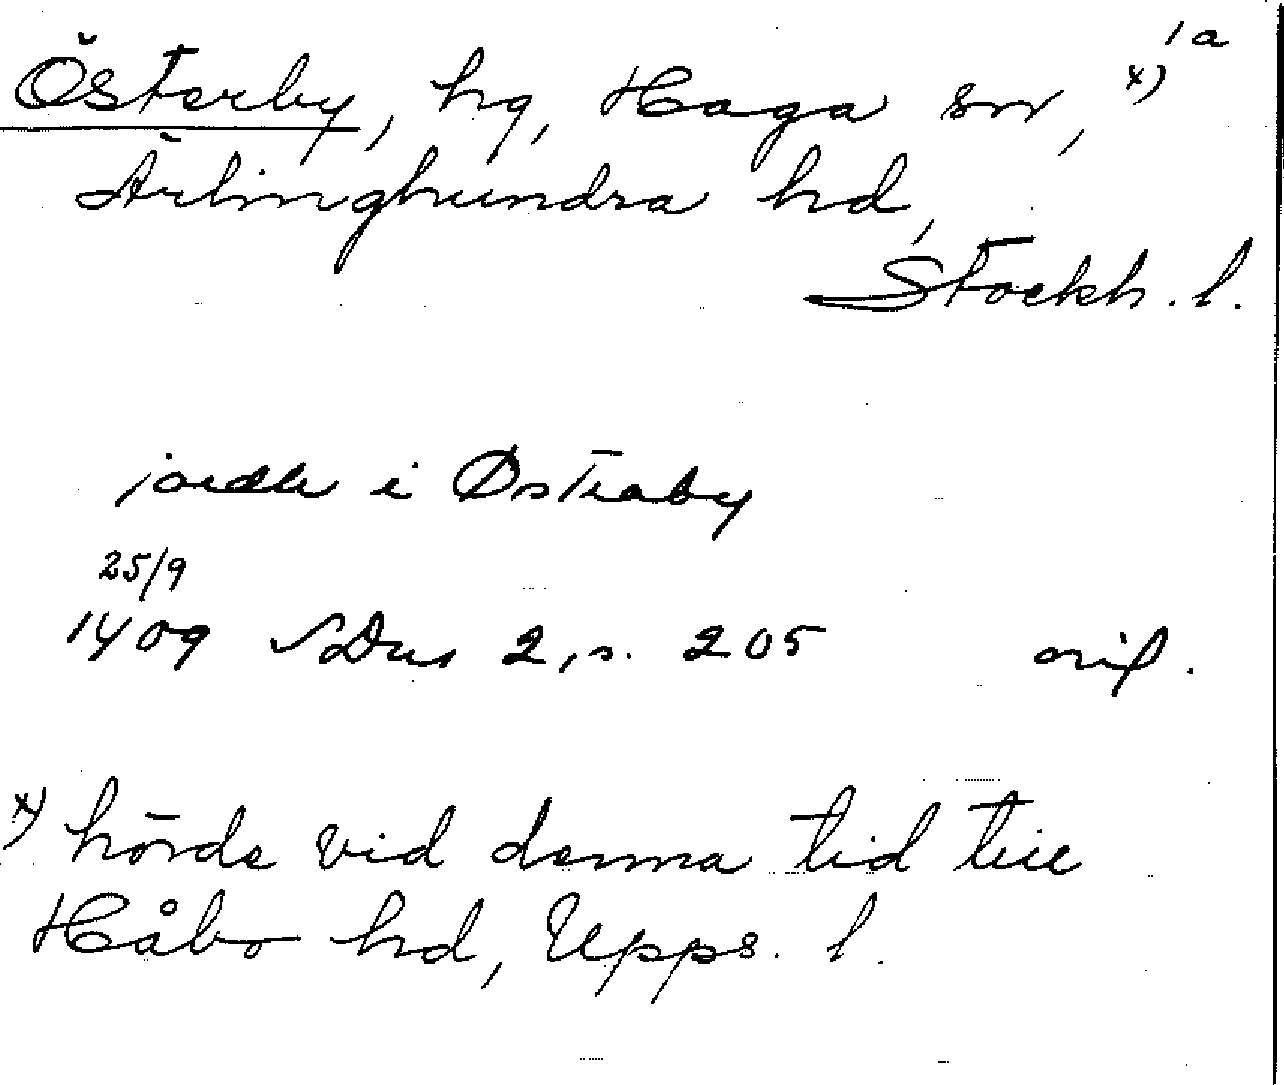 1a
Österby, hg, Haga sn, x)
Ärlinghundra hd,
Stockh. l.
jordh i Østraby
25/9
1409 SDns 2, s. 205 orig.
x) hörde vid denna tid till
Håbo hd, Upps. l.